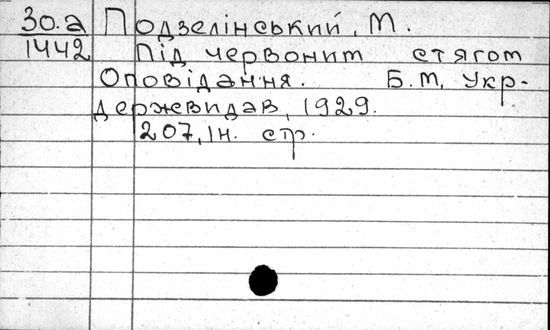 30.а Подзелінський, М.
1442 Під червоним стягом
Оповідання. Б.М, Укр-
державидав, 1929.
207, Ін. стр.